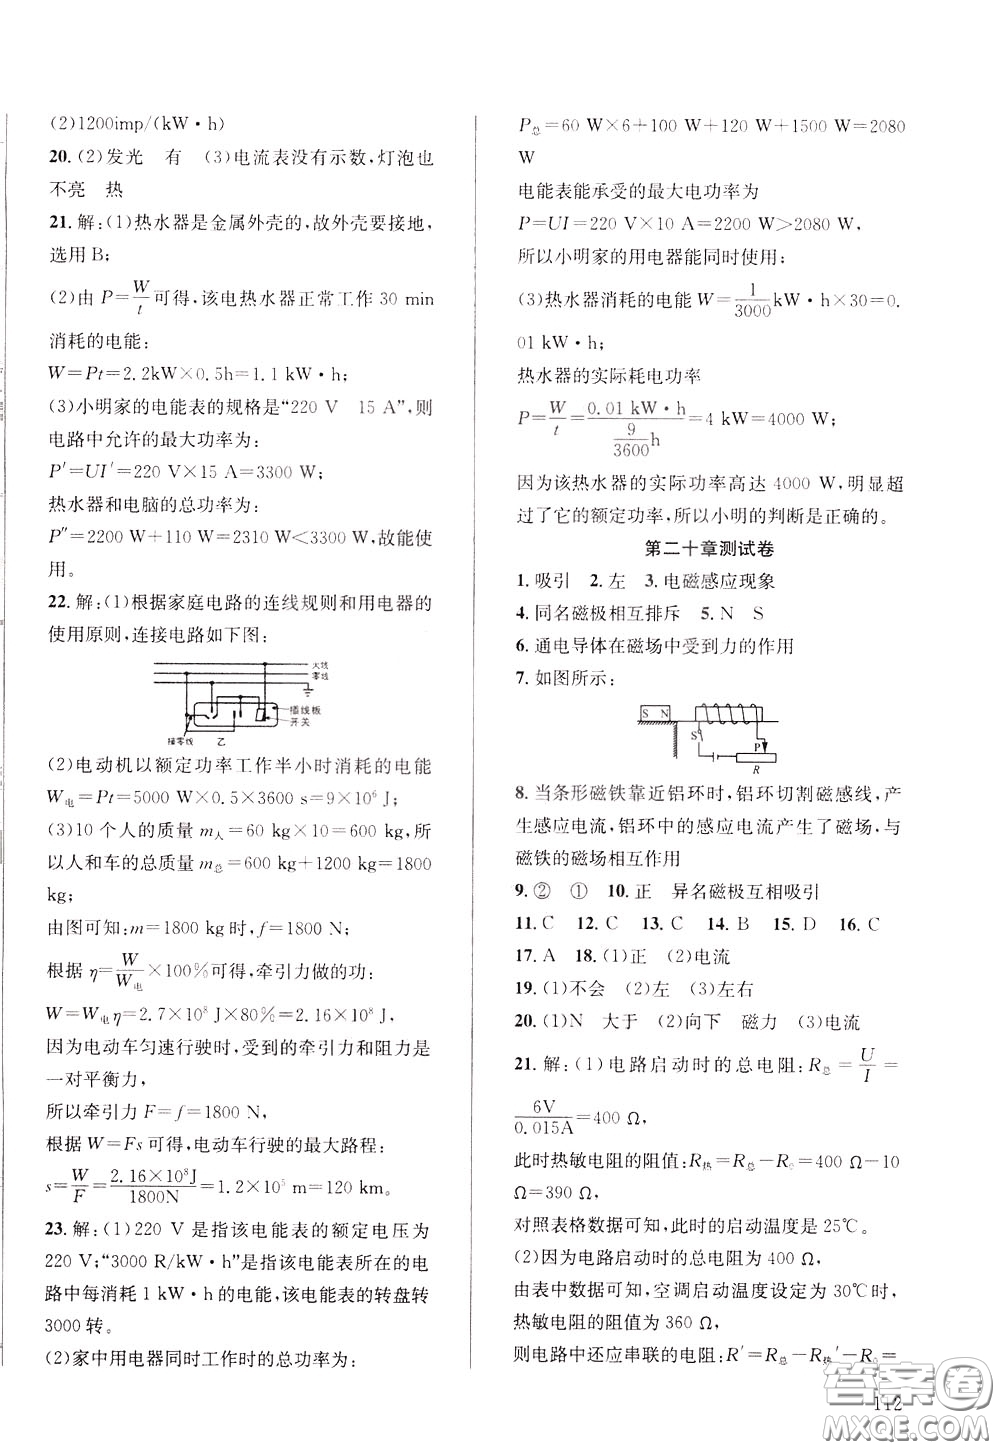 (2)1200imp/(kW·h)
20.(2)发光 有 (3)电流表没有示数,灯泡也
不亮 热
21.解:(1)热水器是金属外壳的,故外壳要接地,
选用B;
(2)由P=W/t可得,该电热水器正常工作30 min
消耗的电能:
W=Pt=2.2kW×0.5h=1.1 kW·h;
(3)小明家的电能表的规格是“220 V 15 A”,则
电路中允许的最大功率为:
P′=UI′=220 V×15 A=3300 W;
热水器和电脑的总功率为:
P″=2200 W+110 W=2310 W<3300 W,故能使
用。
22.解:(1)根据家庭电路的连线规则和用电器的
使用原则,连接电路如下图:
火线
零线
插线板
开关
接零线 乙
(2)电动机以额定功率工作半小时消耗的电能
W电=Pt=5000 W×0.5×3600 s=9×10⁶ J;
(3)10个人的质量m人=60 kg×10=600 kg,所
以人和车的总质量m总=600 kg+1200 kg=1800
kg;
由图可知:m=1800 kg时,f=1800 N;
根据η=W/W电×100%可得,牵引力做的功:
W=W电η=2.7×10⁸ J×80%=2.16×10⁸ J;
因为电动车匀速行驶时,受到的牵引力和阻力是
一对平衡力,
所以牵引力F=f=1800 N,
根据W=Fs可得,电动车行驶的最大路程:
s=W/F=2.16×10⁸J/1800N=1.2×10⁵ m=120 km。
23.解:(1)220 V是指该电能表的额定电压为
220 V;“3000 R/kW·h”是指该电能表所在的电
路中每消耗1 kW·h的电能,该电能表的转盘转
3000转。
(2)家中用电器同时工作时的总功率为:
P总=60 W×6+100 W+120 W+1500 W=2080
W
电能表能承受的最大电功率为
P=UI=220 V×10 A=2200 W>2080 W,
所以小明家的用电器能同时使用;
(3)热水器消耗的电能W=1/3000kW·h×30=0.
01 kW·h;
热水器的实际耗电功率
P=W/t=0.01 kW·h/(9/3600 h)=4 kW=4000 W;
因为该热水器的实际功率高达4000 W,明显超
过了它的额定功率,所以小明的判断是正确的。
第二十章测试卷
1.吸引 2.左 3.电磁感应现象
4.同名磁极相互排斥 5.N S
6.通电导体在磁场中受到力的作用
7.如图所示:
S N
S P
R
8.当条形磁铁靠近铝环时,铝环切割磁感线,产
生感应电流,铝环中的感应电流产生了磁场,与
磁铁的磁场相互作用
9.② ① 10.正 异名磁极互相吸引
11.C 12.C 13.C 14.B 15.D 16.C
17.A 18.(1)正 (2)电流
19.(1)不会 (2)左 (3)左右
20.(1)N 大于 (2)向下 磁力 (3)电流
21.解:(1)电路启动时的总电阻:R总=U/I=
6V/0.015A=400 Ω,
此时热敏电阻的阻值:R热=R总-R0=400 Ω-10
Ω=390 Ω,
对照表格数据可知,此时的启动温度是25℃。
(2)因为电路启动时的总电阻为400 Ω,
由表中数据可知,空调启动温度设定为30℃时,
热敏电阻的阻值为360 Ω,
则电路中还应串联的电阻:R′=R总-R热′-R0=
112
答案卷
MXQE.COM